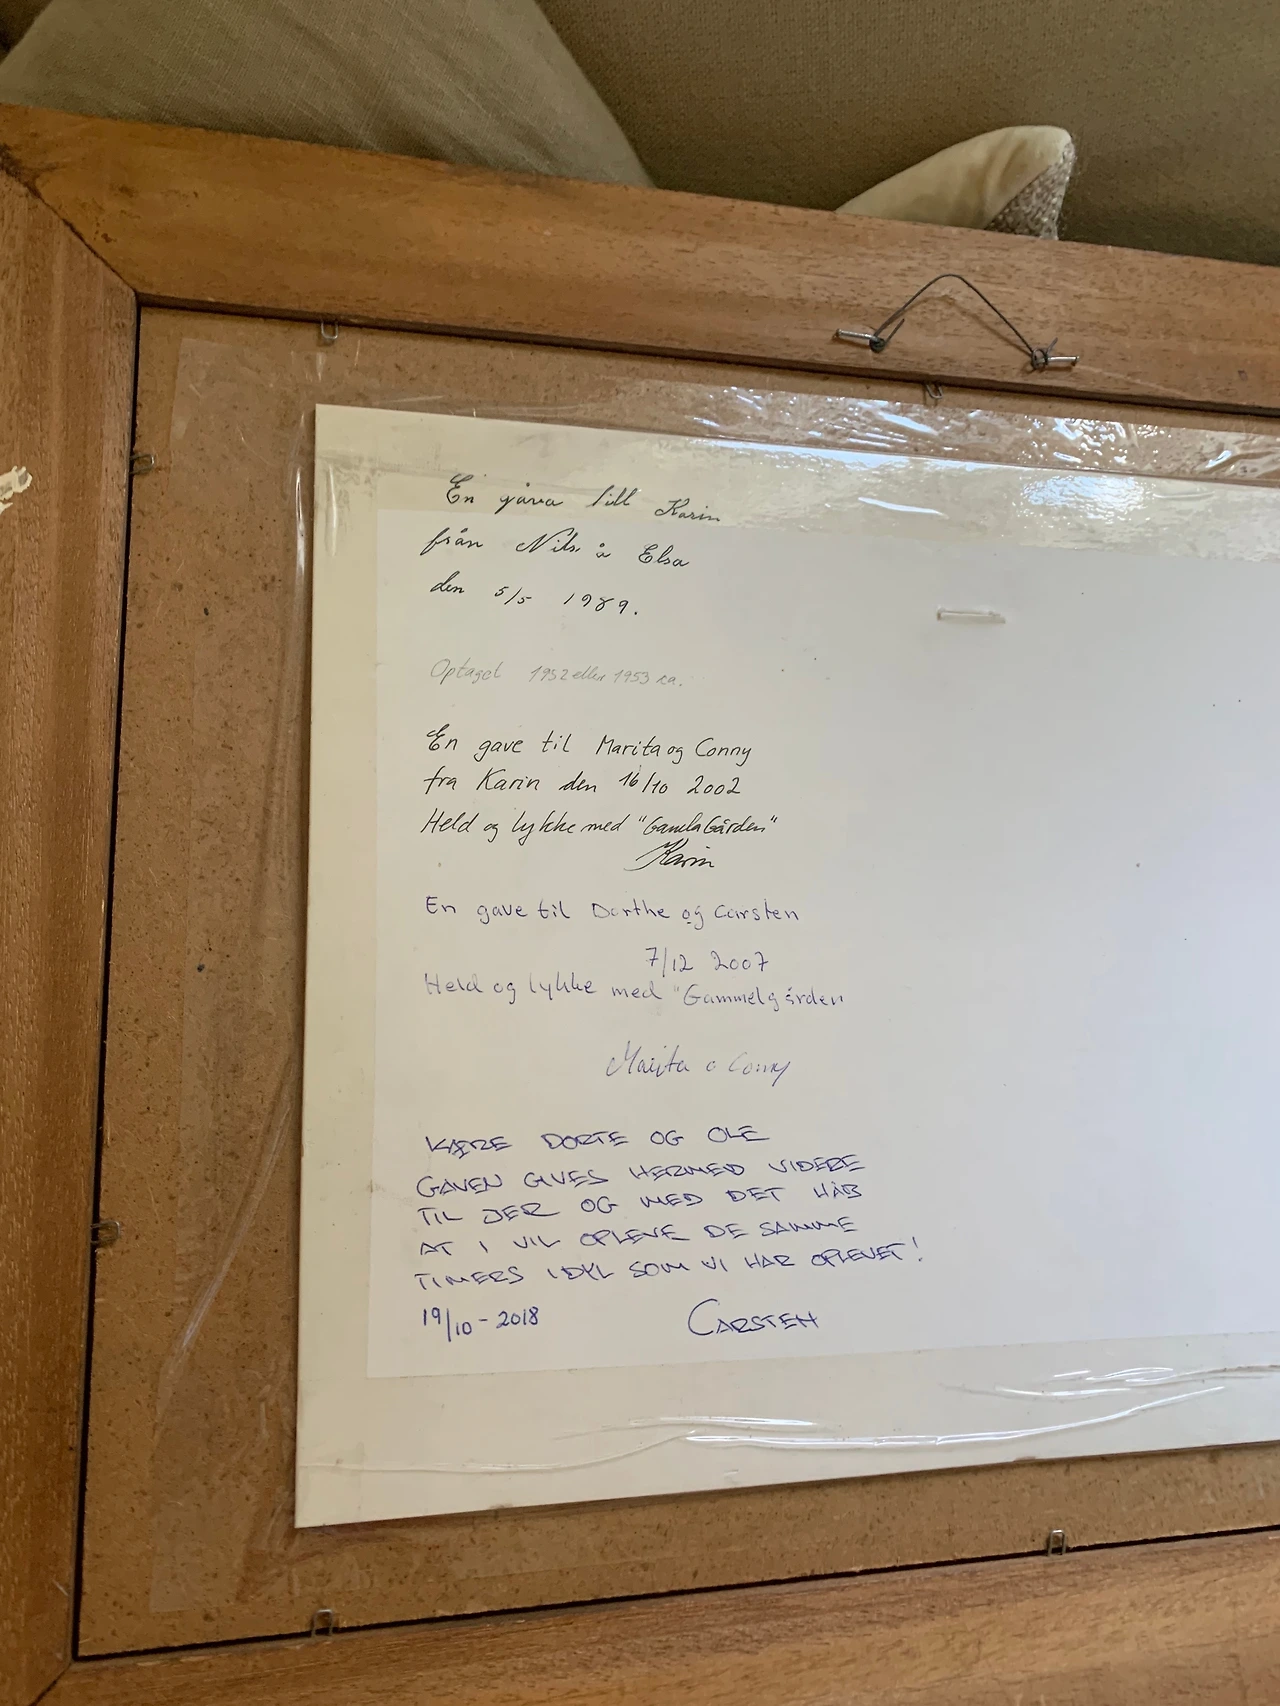 En gåva till Karin
från Nils å Elsa
den 5/5 1989.
Optaget 1952 eller 1953 ca.
En gave til Marita og Conny
fra Karin den 16/10 2002
Held og lykke med "Gamla Gården"
Karin
En gave til Dorthe og Carsten
7/12 2007
Held og lykke med "Gammelgården
Marita o Conny
KÆRE DORTE OG OLE
GAVEN GIVES HERMED VIDERE
TIL JER OG MED DET HÅB
AT I VIL OPLEVE DE SAMME
TIMERS IDYL SOM VI HAR OPLEVET!
19/10-2018 CARSTEN